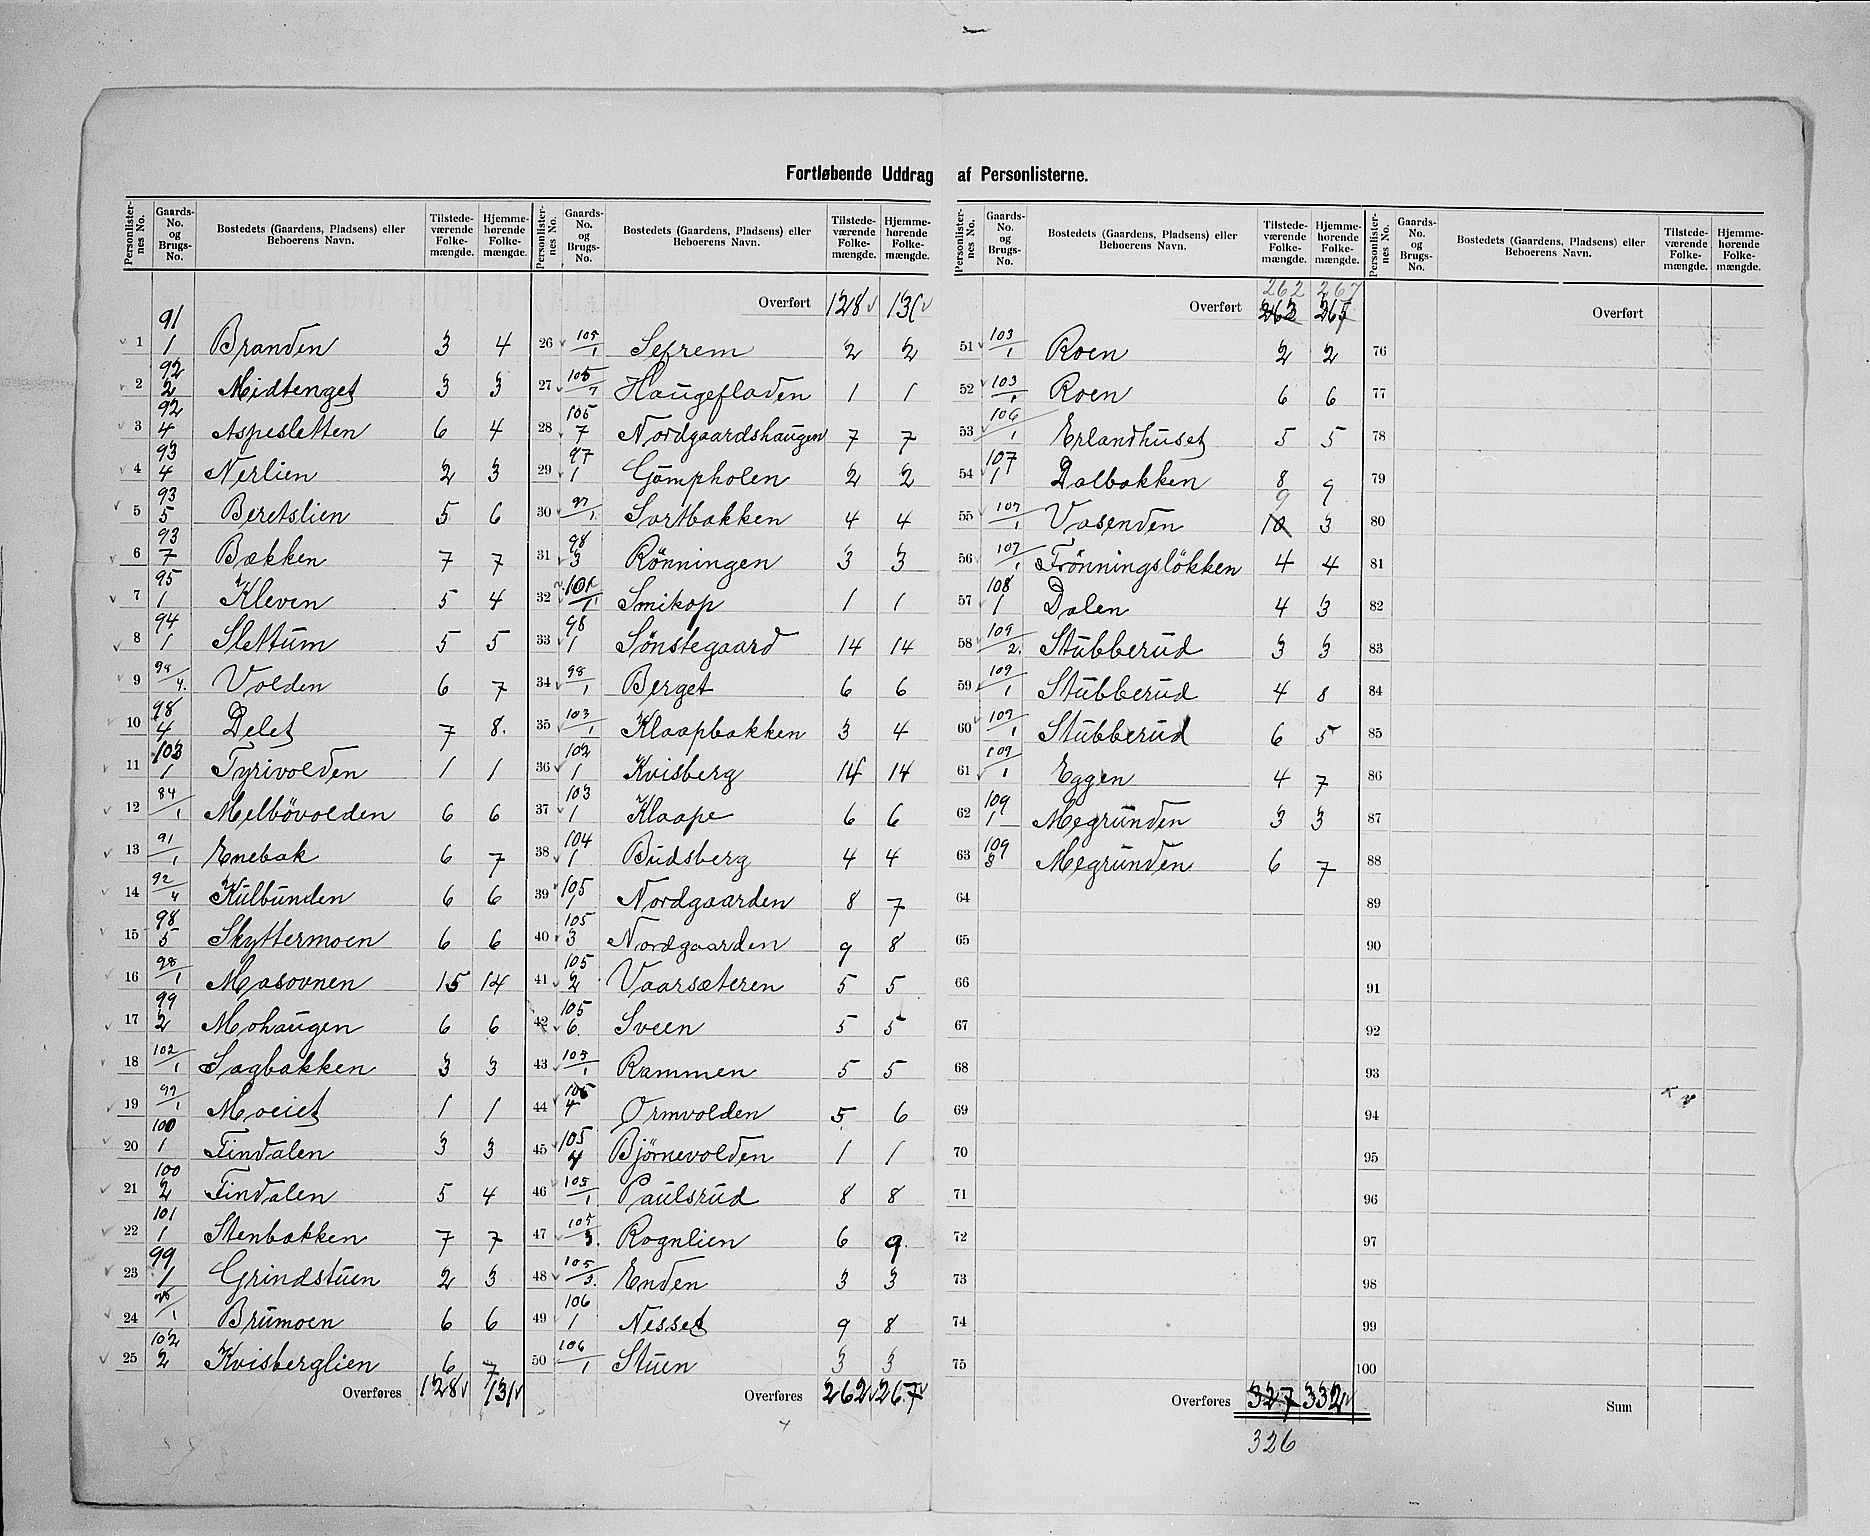 Fortløbende Uddrag af Personlisterne.
Personlister-nes No. | Gaards-No. og Brugs-No. | Bostedets (Gaardens, Pladsens) eller Beboerens Navn. | Tilstede-værende Folke-mængde. | Hjemme-hørende Folke-mængde.
1 91/1 Branden 3 4
2 92/2 Midtenget 3 3
3 92/4 Aspesletten 6 4
4 93/4 Nerlien 2 3
5 93/5 Beretslien 5 6
6 93/7 Bækken 7 7
7 95/1 Kleven 5 4
8 94/1 Slettum 5 5
9 98/4. Volden 6 7
10 98/4 Delet 7 8.
11 103/1 Tyrivolden 1 1
12 84/1 Melbövolden 6 6
13 91/1 Enebak 6 7
14 92/4 Kulbunden 6 6
15 98/5 Skyttermoen 6 6
16 98/1 Masovnen 15 14
17 99/2 Mohaugen 6 6
18 102/1 Sagbakken 3 3
19 99/1 Moeiet 1 1
20 100/1 Findalen 3 3
21 100/2 Findalen 5 4
22 101/1 Stenbakken 7 7
23 99/1 Grindstuen 2 3
24 Brumoen 6 6
25 102/2 Kvisberglien 6 7
Overføres 128 131
Personlister-nes No. | Gaards-No. og Brugs-No. | Bostedets (Gaardens, Pladsens) eller Beboerens Navn. | Tilstede-værende Folke-mængde. | Hjemme-hørende Folke-mængde.
Overført 128 131
26 105/1 Sefrem 2 2
27 105/7 Haugefladen 1 1
28 105/7 Nordgaardshaugen 7 7
29 97/1 Gampholen 2 2
30 97/1. Sartbakken 4 4
31 98/3 Rönningen 3 3
32 101/1 Smikop 1 1
33 98/1 Sönstegaard 14 14
34 98/1 Berget 6 6
35 103/1 Klaapbakken 3 4
36 102/1 Kvisberg 14 14
37 103/1 Klaape 6 6
38 104/1 Budsberg 4 4
39 105/1 Nordgaarden 8 7
40 105/3 Nordgaarden 9 8
41 105/2 Vaarsæteren 5 5
42 105/6. Sveen 5 5
43 105/1 Rammen 5 5
44 105/4 Ormvolden 5 6
45 105/4 Bjørnevolden 1 1
46 105/1 Paulsrud 8 8
47 105/3. Rognlien 6 9.
48 105/3. Enden 3 3
49 106/1 Nesset 9 8
50 106/1 Stuen 3 3
Overføres 262 267
Personlister-nes No. | Gaards-No. og Brugs-No. | Bostedets (Gaardens, Pladsens) eller Beboerens Navn. | Tilstede-værende Folke-mængde. | Hjemme-hørende Folke-mængde.
262 267
Overført 263 265
51 103/1 Roen 2 2
52 103/1 Roen 6 6
53 106/1 Erlandhuset 5 5
54 107/1 Dalbakken 8 9
9
55 107/1 Vasenden 10 3
56 107/1 Frönningslökken 4 4
57 108/1 Dalen 4 3
58 109/2. Stubberud 3 3
59 109/1 Stubberud 4 8
60 109/1 Stubberud 6 5
61 109/1 Eggen 4 7
62 109/1 Megrunden 3 3
63 109/3 Megrunden 6 7
64
65
66
67
68
69
70
71
72
73
74
75
Overføres 327 332
326
Personlister-nes No. | Gaards-No. og Brugs-No. | Bostedets (Gaardens, Pladsens) eller Beboerens Navn. | Tilstede-værende Folke-mængde. | Hjemme-hørende Folke-mængde.
Overført
76
77
78
79
80
81
82
83
84
85
86
87
88
89
90
91
92
93
94
95
96
97
98
99
100
Sum